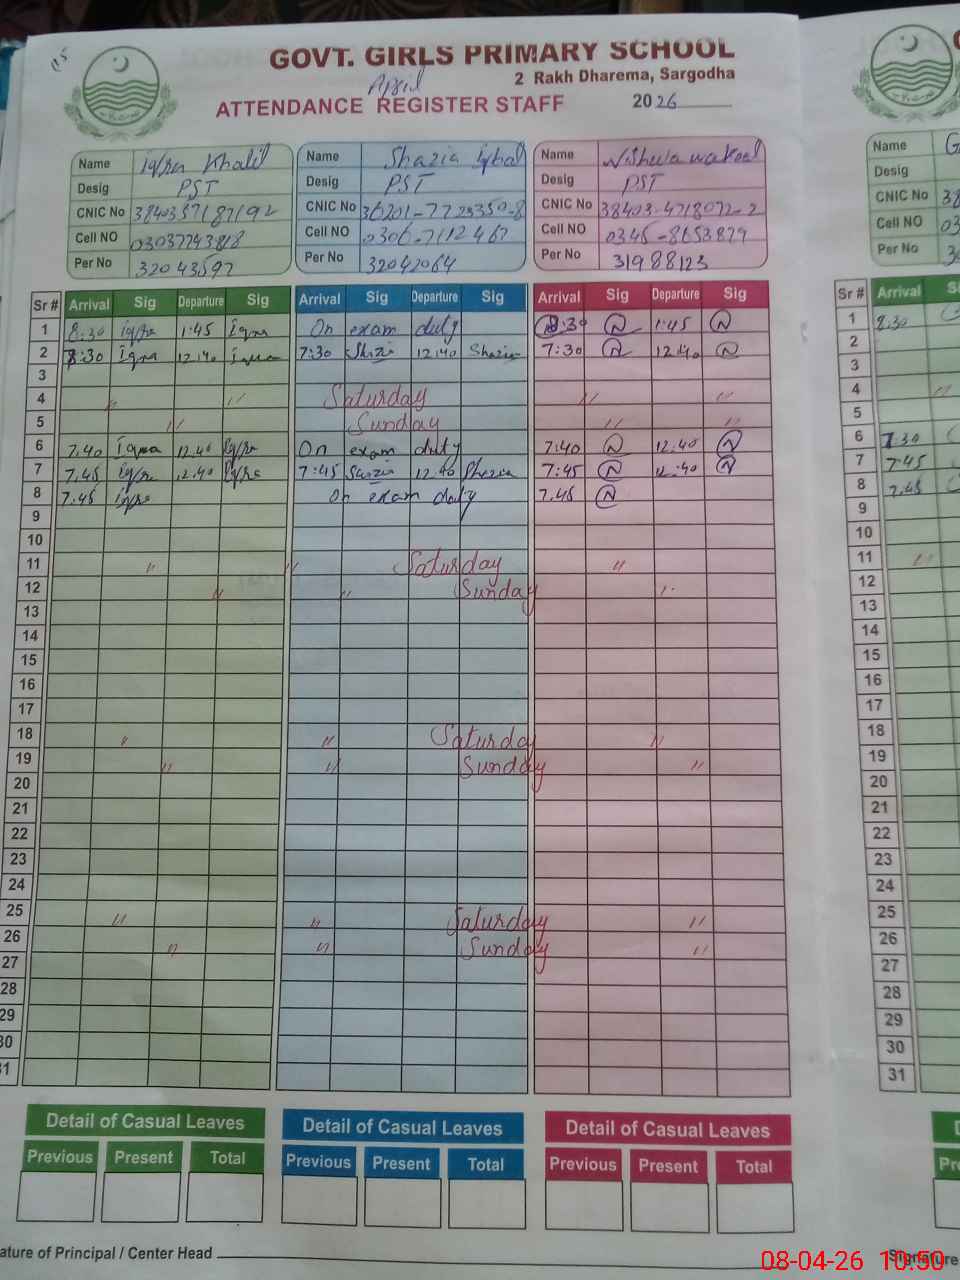 GOVT. GIRLS PRIMARY SCHOOL
2 Rakh Dharema, Sargodha
April
ATTENDANCE REGISTER STAFF 2026
Name Iqra Khalil Name Shazia Iqbal Name wakeel Name
Desig PST Desig PST Desig PST Desig
CNIC No 3840357187192 CNIC No 36201-7725350-8 CNIC No 38403-4718072-2 CNIC No 38
Cell NO 03037743818 Cell NO 0306-7112467 Cell NO 0345-8653879 Cell NO 03
Per No 32043597 Per No 32042064 Per No 31988123 Per No
Sr # Arrival Sig Departure Sig Arrival Sig Departure Sig Arrival Sig Departure Sig Sr # Arrival
1 8:30 iqra 1:45 iqra On exam duty 8:30 N 1:45 N 1 8:30
2 8:30 iqra 12:40 iqra 7:30 Shazia 12:40 Shazia 7:30 N 12:40 N 2
3 3
4 " " Saturday " " 4 "
5 " Sunday " " 5
6 7:40 iqra 12:40 iqra On exam duty 7:40 N 12:40 N 6 7:30
7 7:45 iqra 12:40 iqra 7:45 Shazia 12:40 Shazia 7:45 N 12:40 N 7 7:45
8 7:45 iqra On exam duty 7:45 N 8 7:45
9 9
10 10
11 " " Saturday " 11 "
12 " " Sunday " 12
13 13
14 14
15 15
16 16
17 17
18 " " Saturday " 18
19 " " Sunday " 19
20 20
21 21
22 22
23 23
24 24
25 " " Saturday " 25
26 " " Sunday " 26
27 27
28 28
29 29
30 30
31 31
Detail of Casual Leaves Detail of Casual Leaves Detail of Casual Leaves
Previous Present Total Previous Present Total Previous Present Total
ature of Principal / Center Head Signature
08-04-26 10:50